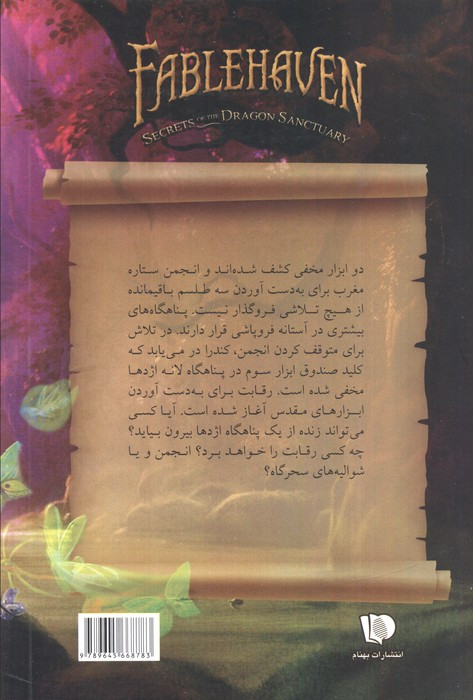 FABLEHAVEN
SECRETS OF THE DRAGON SANCTUARY
دو ابزار مخفی کشف شده‌اند و انجمن ستاره
مغرب برای به‌دست آوردن سه طلسم باقیمانده
از هیچ تلاشی فروگذار نیست. پناهگاه‌های
بیشتری در آستانه فروپاشی قرار دارند. در تلاش
برای متوقف کردن انجمن، کندرا در می‌یابد که
کلید صندوق ابزار سوم در پناهگاه لانه اژدها
مخفی شده است. رقابت برای به‌دست آوردن
ابزارهای مقدس آغاز شده است. آیا کسی
می‌تواند زنده از یک پناهگاه اژدها بیرون بیاید؟
چه کسی رقابت را خواهد برد؟ انجمن و یا
شوالیه‌های سحرگاه؟
9 789645 668783
انتشارات بهنام